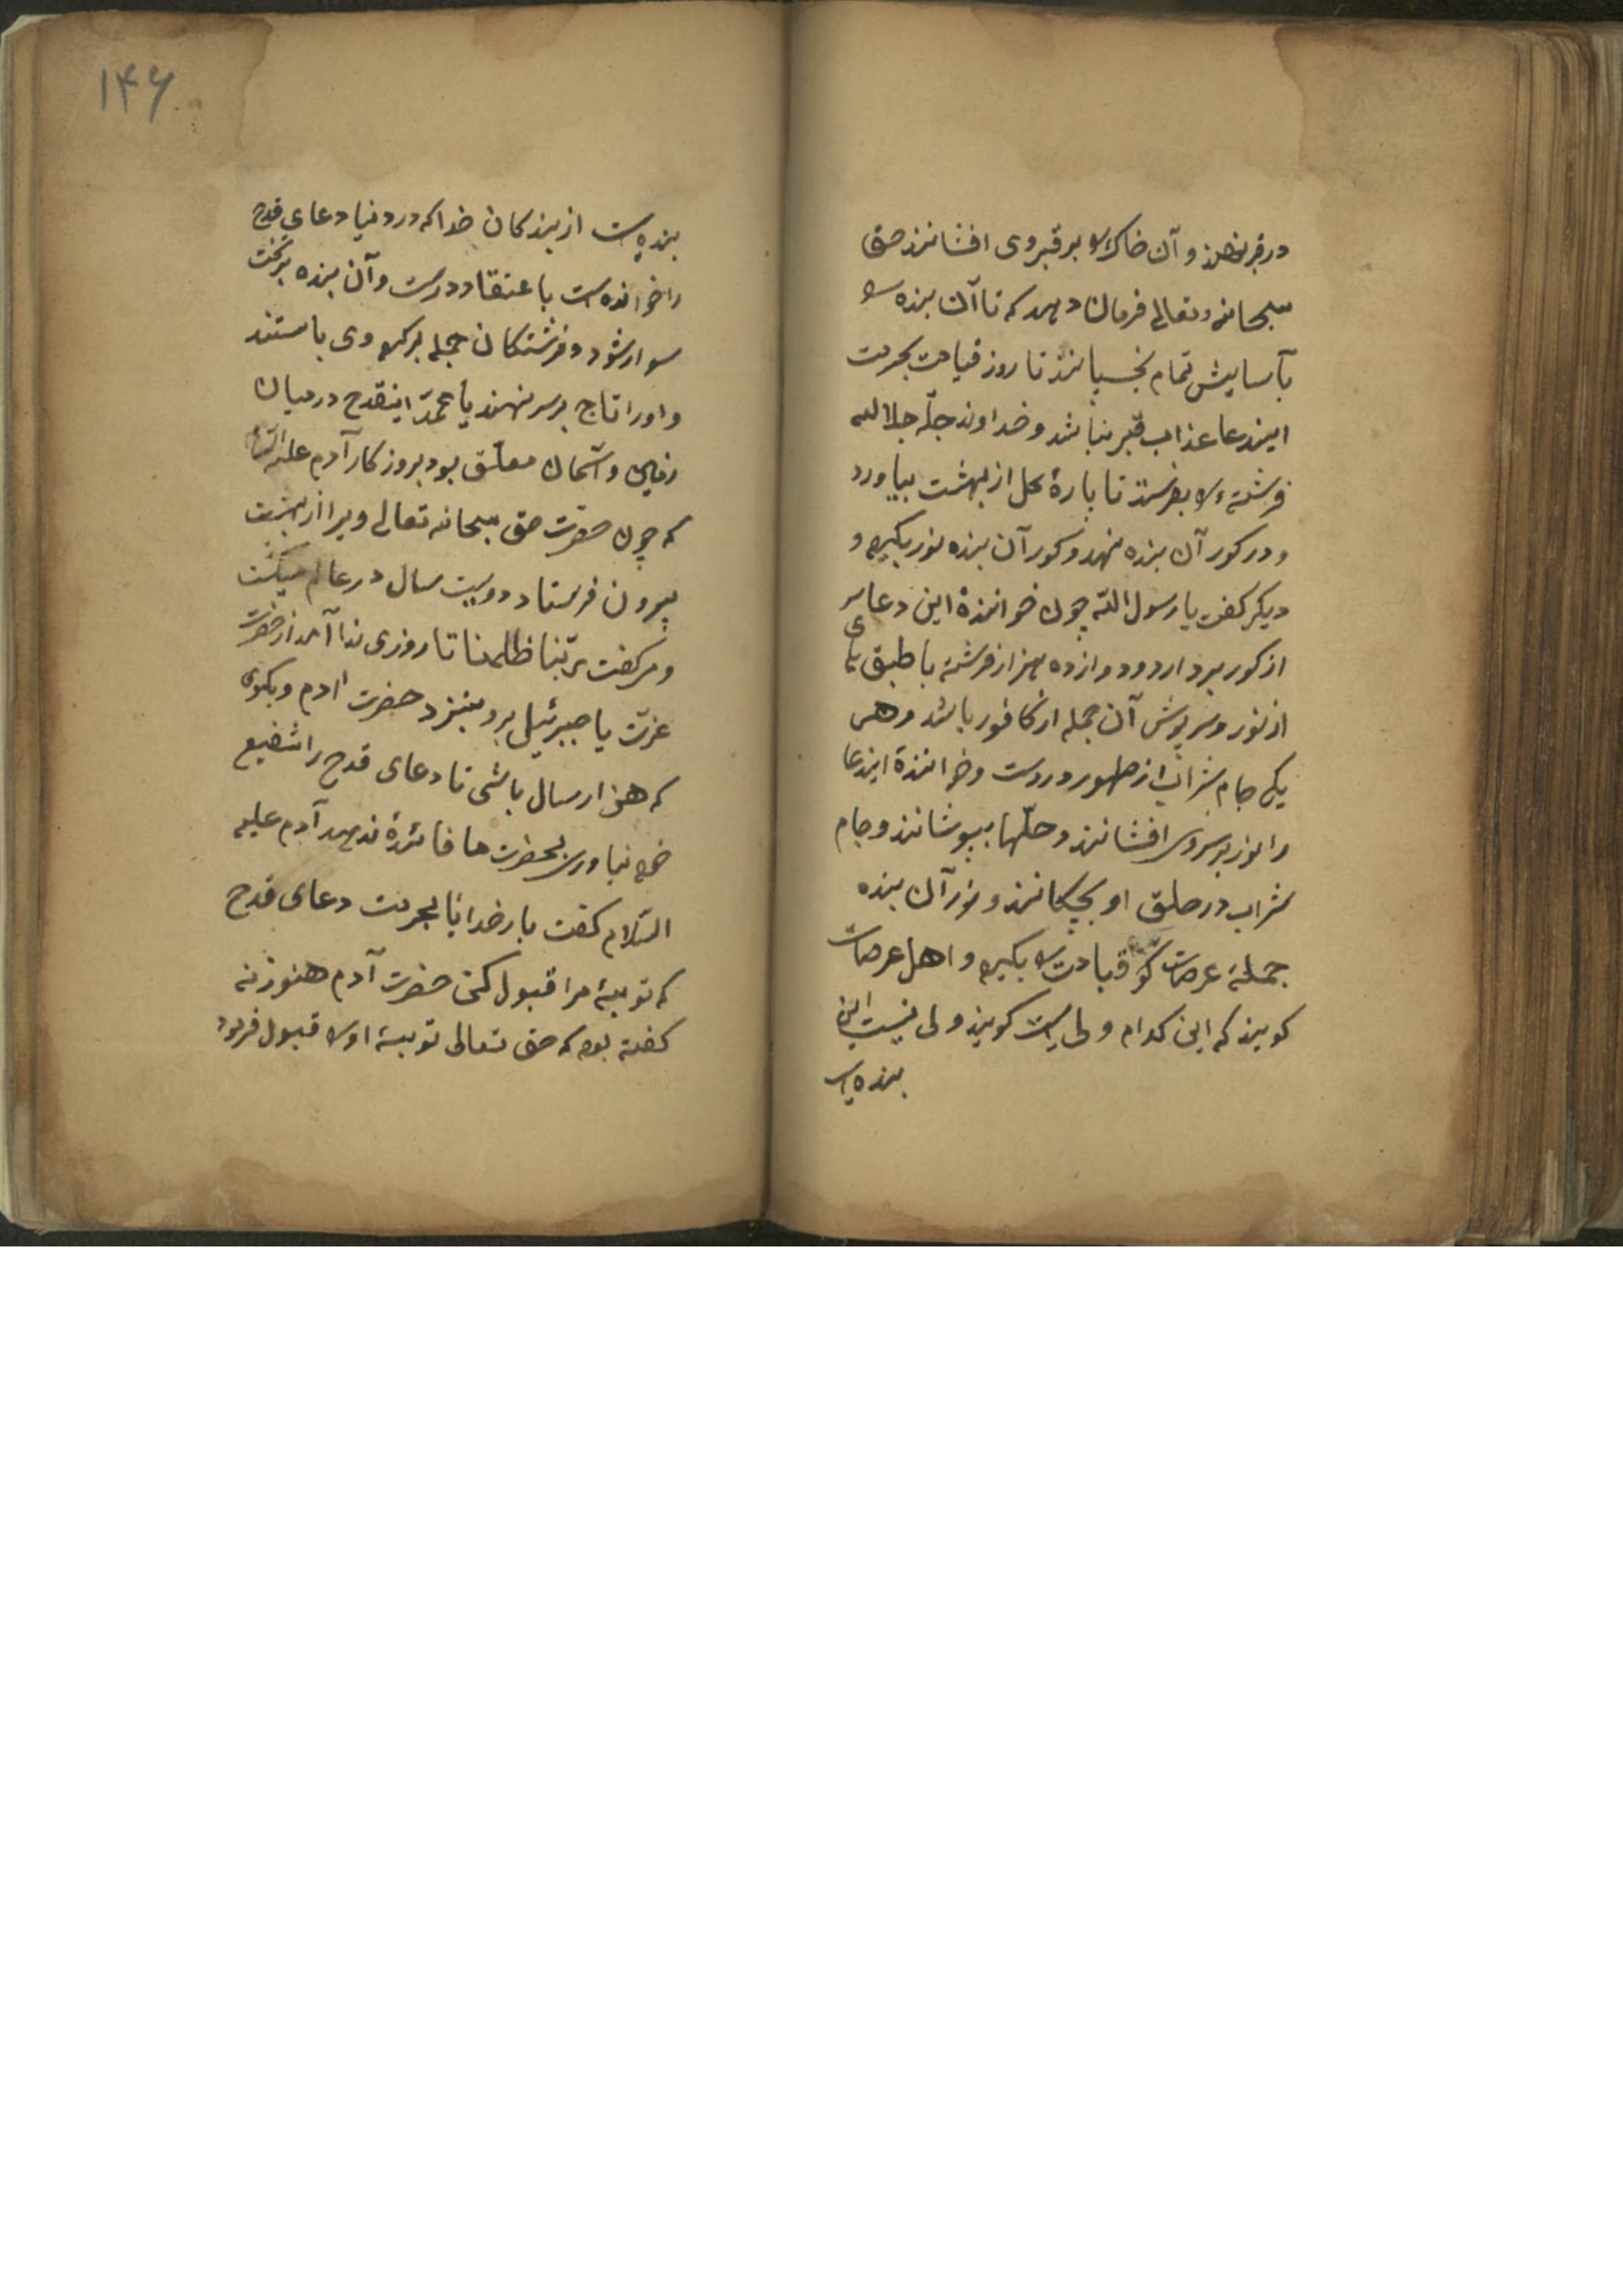 در قبر نهند و آن خاک را بر قبر وی افشانند حق
سبحانه و تعالی فرمان دهد که تا آن بنده را
بآسایش تمام بخسپانند تا روز قیامت بحرمت
ایندعا عذاب قبر نباشد و خداوند جلّه جلاله
فرشته را بفرستد تا پارهٔ کل از بهشت بیاورد
و در کور آن بنده نهد و کور آن بنده نور بکیرد و
دیکر کفت یا رسول الله چون خوانندهٔ این دعا سر
از کور بردارد دوازده هزار فرشته با طبق های
از نور و سرپوش آن جمله از کافور باشد و هر
یکی جام شراب از طهور دروست و خوانندهٔ ایندعا
را نور بر سروی افشانند و حلّها بپوشانند و جام
شراب در حلق او بچکانند و نور آن بنده
جملهٔ عرصات قیامت را بکیرد و اهل عرصات
کویند که این کدام ولی است کویند ولی نیست این
بنده ایست
۱۴۶
بنده ایست از بندکان خدا که در دنیا دعای قدح
را خوانده است با عتقاد درست و آن بنده بر تخت
سوار شود و فرشتکان جمله بر کرد وی باستند
و او را تاج بر سر نهند یا محمد اینقدح در میان
زمین و آسمان معلّق بود بروزکار آدم علیه السلام
که چون حضرت حق سبحانه تعالی ویرا از بهشت
بیرون فرستاد دویست سال در عالم میکشت
و میکفت ربّنا ظلمنا تا روزی ندا آمد از حضرت
عزّت یا جبرئیل برو بنزد حضرت آدم و بکوی
که هزار سال باشی تا دعای قدح را شفیع
خود نیاوری بحضرت ما فائدهٔ ندهد آدم علیه
السّلام کفت بار خدایا بحرمت دعای قدح
که توبهٔ مرا قبول کنی حضرت آدم هنوز نه
کفته بود که حق تعالی توبهٔ او را قبول فرمود